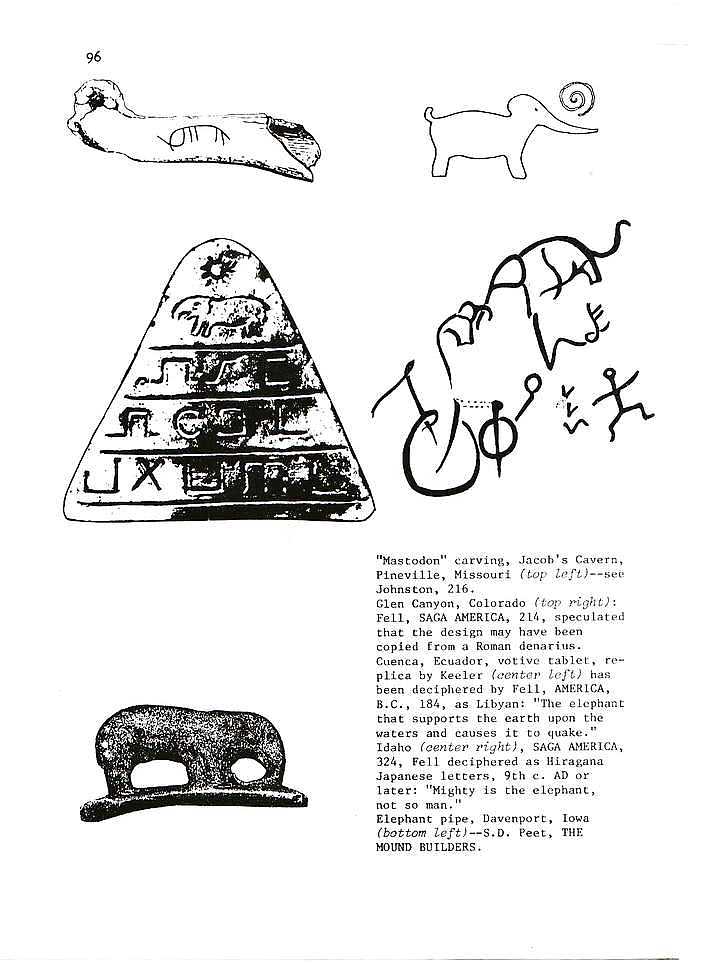 96
"Mastodon" carving, Jacob's Cavern,
Pineville, Missouri (top left)--see
Johnston, 216.
Glen Canyon, Colorado (top right):
Fell, SAGA AMERICA, 214, speculated
that the design may have been
copied from a Roman denarius.
Cuenca, Ecuador, votive tablet, re-
plica by Keeler (center left) has
been deciphered by Fell, AMERICA,
B.C., 184, as Libyan: "The elephant
that supports the earth upon the
waters and causes it to quake."
Idaho (center right), SAGA AMERICA,
324, Fell deciphered as Hiragana
Japanese letters, 9th c. AD or
later: "Mighty is the elephant,
not so man."
Elephant pipe, Davenport, Iowa
(bottom left)--S.D. Peet, THE
MOUND BUILDERS.